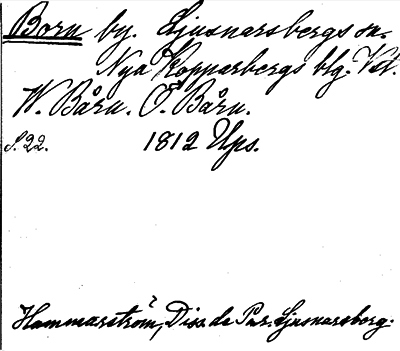 Born by. Ljusnarsbergs sn.
Nya Kopparbergs blg. Vstl.
W. Bårn. Ö. Bårn.
S. 22. 1812 Ups.
Hammarström, Diss. de Par. Ljusnarsberg.